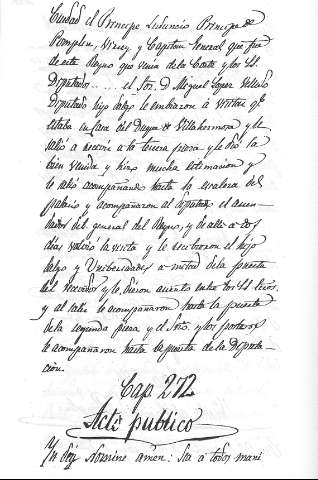 Ciudad el Principe Principe de
Pomplin, Virey y Capitan General que fue
de este Reyno que venia de la Corte y los SS.
Diputados..... el Sor. D. Miguel Lopez
Diputado hijo dalgo le embiaron á visitar qe.
estaba en Casa del Duque de Villahermosa y le
salió a recevir a la tercera pieza y le dió la
bien venida y hizo mucha estimacion y
le salió acompañando hasta la escalera del
palacio y acompañaron al Diputado el
del general del Reyno, y de alli a dos
dias volvio la visita y le recibieron el hijo
dalgo y Universidades a mitad de la puerta
del y le dieron asiento entre los SS.
y al salir le acompañaron hasta la puerta
de la segunda pieza y el y los porteros
le acompañaron hasta la puerta de la Diputa-
cion.
Cap. 272
Acto publico
Yn Dei Nomine amen: Sea a todos mani